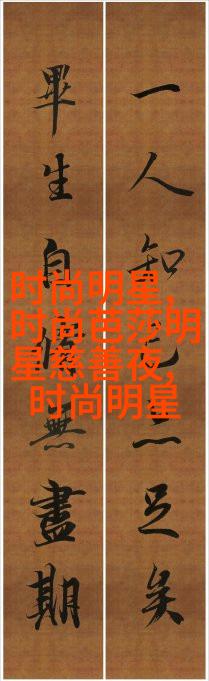 一人知己亦足矣
畢生自修無盡期
时尚明星,
时尚芭莎明
星慈善夜,
时尚明星